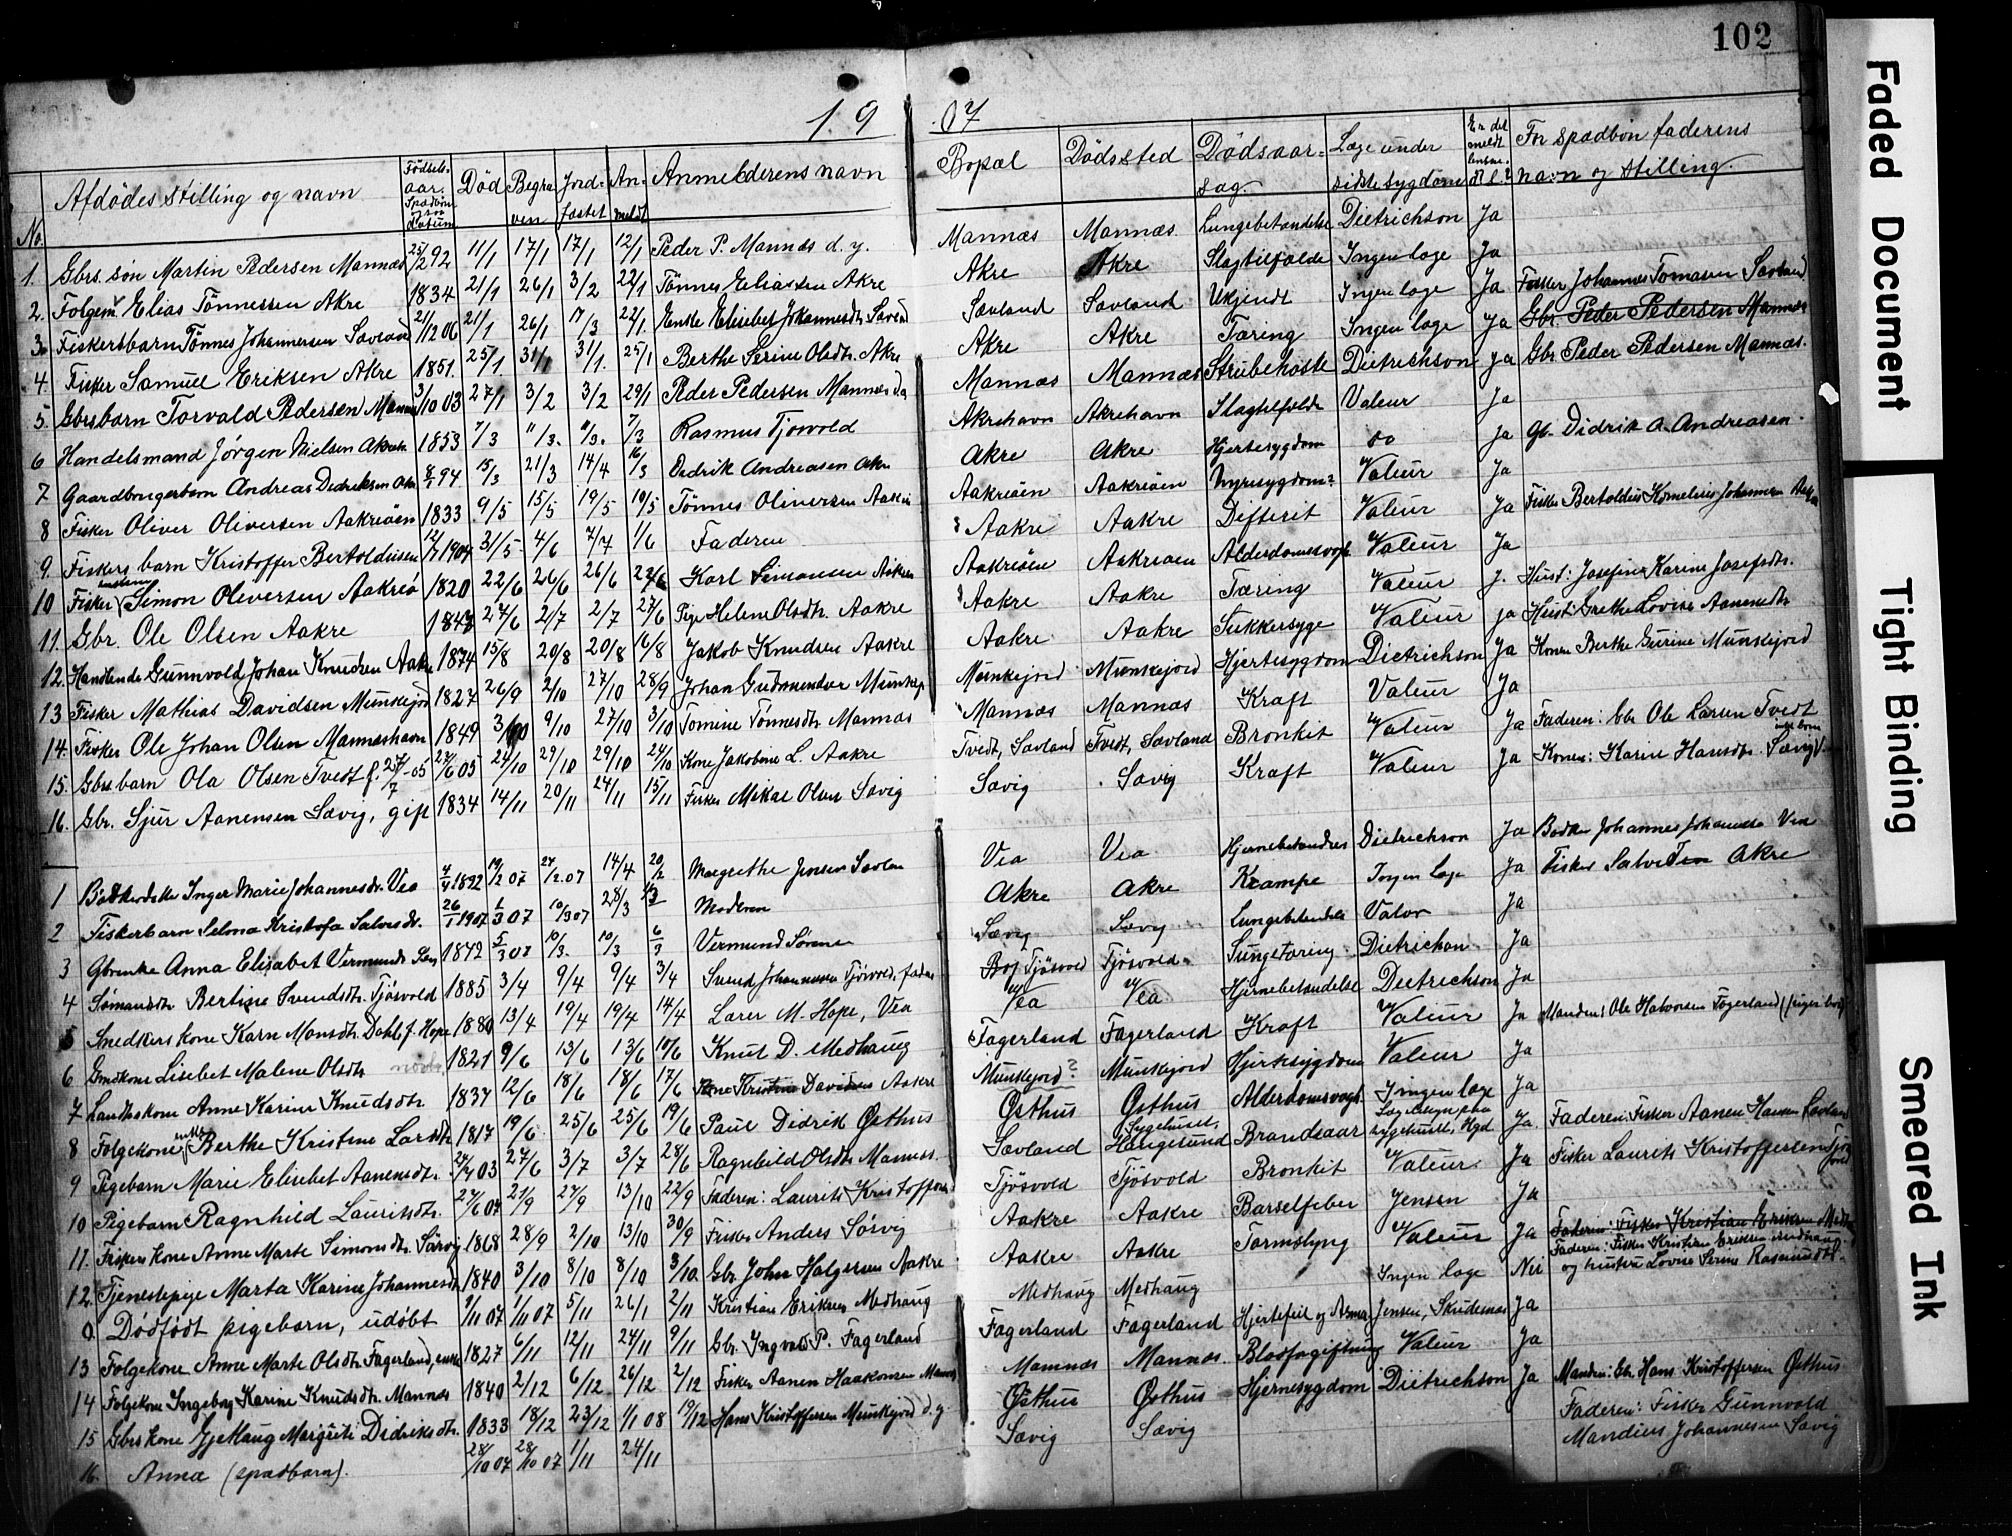 102
19 07
No. Afdödes stilling og navn Fødsels-aar. Spædbørn ogsaa datum Död Begra-ven Jord-fæstet An-meldt Anmelderens navn Bopæl Dödssted Dödsaar-sag. Læge under sidste sygdom Er det meldt lensm. For spædbörn faderens navn og stilling.
1. Gbrs. sön Martin Pedersen Mannes 25/2 92 11/1 17/1 17/1 12/1 Peder P. Mannæs d. y. Mannæs Mannæs Lungebetændelse Dietrichson Ja
2. Folgem. Elias Tönnessen Akre 1834 21/1 26/1 3/2 22/1 Tönnes Eliassen Akre Akre Akre Slagtilfælde Ingen læge Ja
3. Fiskersbarn Tönnes Johannessen Sævland 21/12 06 21/1 26/1 17/3 22/1 Enke Elisebet Johannesdt. Sævland Sævland Sævland Ukjendt Ingen læge Ja Fisker Johannes Tomasen Sævland
4. Fisker Samuel Eriksen Akre 1851. 25/1 31/1 31/1. 25/1 Berthe Serine Olsdtr. Akre Akre Akre Tæring Ingen læge Ja Gbr. Peder Pedersen Mannæs
5. Gbrsbarn Torvald Pedersen Mannes 3/10 03 27/1 3/2 3/2 29/1 Peder Pedersen Mannæs Mannæs Mannæs Strubehoste Dietrichson Ja Gbr. Peder Pedersen Mannæs.
6 Handelsmand Jörgen Nielsen Akreh. 1853 7/3 11/3. 11/3. 7/3 Rasmus Tjosvold Akrehavn Akrehavn Slagtilfælde Valeur Ja
7. Gaardbrugerbarn Andreas Dedriksen Akre 8/1 94 15/3 21/3 14/4 16/3 Dedrik Andreasen Akre Akre Akre Hjertesygdom do Ja Gb. Didrik A. Andreasen.
8 Fisker Oliver Oliversen Aakreöen 1833 9/5 15/5 19/5 10/5 Tönnes Oliversen Aakre Aakreöen Aakreöen Nyresygdom? Valeur Ja
9. Fiskers barn Kristoffer Bertoldeusen 12/7 1904 31/5 4/6 7/7 1/6 Faderen Aakre Aakre Difterit Valeur Ja Fisker Bertoldius Kornelius Johannesen
10 Fisker Simon Oliversen Aakreö 1820 22/6 26/6 26/6 Karl Simonsen Aakre Aakreöen Aakreöen Alderdomssvagh. Valeur Ja
11. Gbr. Ole Olsen Aakre 27/6 2/7 2/7 27/6 Pige Helene Olsdtr. Aakre Aakre Aakre Tæring Valeur J. Hust: Josefine Karine Josefsdtr.
12. Handlende Gunnvold Johan Knudsen Aakre 1874 15/8 20/8 20/8 16/8 Jakob Knudsen Aakre Aakre Aakre Sukkersyge Valeur Ja Hust: Grethe Lovise Aanensdtr
13 Fisker Mathias Davidsen Munkejord 1827 26/9 2/10 27/10 28/9 Johan Gudmundsen Munkej. Munkejord Munkejord Hjertesygdom Dietrichson Ja Konen Berthe Gurine Munkejord
14. Fisker Ole Johan Olsen Mannæshavn 1849 3/10 9/10 27/10 3/10 Tomine Tönnesdtr. Mannæs Mannæs Mannæs Kræft Valeur Ja
15. Gbrs barn Ola Olsen Tvedt 27/6 05 24/10 29/10 29/10 24/10 Kone Jakobine L. Aakre Tvedt, Sævland Tvedt, Sævland Bronkit Valeur Ja Faderen: Gbr. Ole Larsen Tvedt
16. Gbr. Sjur Aanensen Sævig, gift 1834 14/11 20/11 24/11 15/11 Fisker Mikal Olsen Sævig Sævig Sævig Kræft Valeur Ja Konen: Karine Hansdtr. Sævig
1 Inger Marie Johannesdt. Vea 4/4 1892 19/2 07 27/2.07 14/4 20/2 Margrethe Jensen Sævland Vea Vea Hjernebetændelse Dietrichson Ja Bødker Johannes Johannesen Vea
2 Fiskerbarn Selma Kristofa Salvesdt. 26/1 1907 1/3 07 10/3 07 28/3 Moderen Akre Akre Krampe Ingen læge Ja Fisker Salve Akre
3 Gbrenke Anna Elisabet Vermunds 1842 5/3 07 10/3. 10/3 6/3 Vermund Sörensen Sævig Sævig Lungebetændelse Valør Ja
4 Sömandsdtr Bertine Svendsdtr. Tjösvold 1885 3/4 9/4 9/4 3/4 Svend Johannessen Tjösvold, fader Tjösvold Tjösvold Lungetæring Dietrichson Ja
5 Snedkers kone Karn Monsdtr. Dahl f. Hope 1880 13/4 19/4 19/4 14/4 Larer M. Hope, Vea Vea Vea Hjernebetændelse Dietrichson Ja
6 Gmdkone Lisebet Malene Olsdtr 1821 9/6 13/6 13/6 10/6 Knut D. Medhaug Fagerland Fagerland Kræft Valeur Ja Manden: Ole Halvorsen Fagerland
7 Anne Karine Knudsdtr. 1837 12/6 18/6 18/6 17/6 Kone Kristine Davidsen Aakre Munkejord? Munkejord Hjertesygdom Valeur Ja
8 Folgekone enke Berthe Kristine Larsdtr 1817 19/6 25/6 25/6 19/6 Paul Didrik Østhus Østhus Østhus Alderdomssvagh. Ingen læge Ja
9 Pigebarn Marie Elisebet Aanensdtr. 24/7 03 27/6 3/7 3/7 28/6 Ragnhild Olsdtr Mannæs. Sævland Sygehuset, Haugesund Brandsaar sygehuset, Hgd Ja. Faderen: Fisker Aanen Hansen Sævland
10 Pigebarn Ragnhild Lauritsdtr. 27/6 07 21/9 27/9 13/10 22/9 Faderen: Laurits Kristoffersen Tjösvold Tjösvold Bronkit Valeur. Ja Fisker Laurits Kristoffersen Tjösvold
11. Fiskers kone Anne Marte Simonsdtr. Sörvig 1868 28/9 2/10 13/10 30/9 Fisker Anders Sörvig Aakre Aakre Barselfeber Jensen Ja
12. Tjenestepige Marta Karine Johannesdt. 1840 3/10 8/10 8/10 3/10. Gbr. John Holgersen Aakre Aakre Aakre Tarmslyng Valeur Ja Faderen: Fisker Kristian Eriksen Medh.
0. Dödfödt pigebarn, udöbt 1/11 07 1/11 07 5/11 26/1 2/11 Kristian Eriksen Medhaug Medhaug Medhaug Ingen læge Nei Faderen: Fisker Kristian Eriksen Medhaug og hustru Lovise Serine Rasmusdtr.
13 Folgekone Anne Marte Olsdtr. Fagerland, enke 1827 6/11 12/11 24/11 9/11 Gbr. Ingvald P. Fagerland Fagerland Fagerland Hjertefeil og Jensen, Skudenes Ja
14 Folgekone Ingeborg Karine Knudsdtr. Mannæs 1840 2/12 6/12 26/12 2/12 Fisker Aanen Haakonsen Mannes Mannæs Mannæs. Blodforgiftning Valeur Ja
15 Gbrs kone Gjertaug Margrete Didriksdtr. 1833 18/12 23/12 1/1 08 19/12 Hans Kristoffersen Munkejord d.y. Østhus Østhus Hjernesygdom Dietrichson Ja Manden: Gbr. Hans Kristoffersen Østhus
16. Anna (spædbarn). 28/10 07 28/10 07 1/11 24/11 Sævig Sævig Faderen: Fisker Gunnvald Mandius Johannesen Sævig
Faded Document
Tight Binding
Smeared Ink